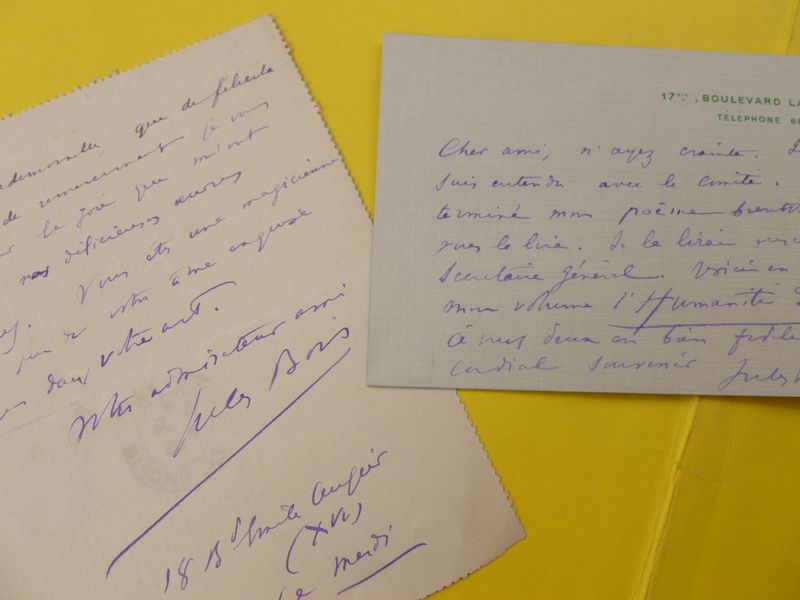 ademoiselle, que de félicita
de remerciements je vous
la joie que m'ont
vos délicieuses œuvres
Vous êtes une magicienne
votre âme exquise
dans votre art.
votre admirateur ami
Jules Bois
18 Bd Emile Augier
(XVI)
ce mardi
17BIS, BOULEVARD LA
TÉLÉPHONE 6
Cher ami, n'ayez crainte.
suis entendu avec le comité.
terminé mon poème bientôt
le lire. Je le lirai
Secrétaire Général. Voici en
mon volume l'Humanité
à vous deux en bien fidèle
cordial souvenir Jules